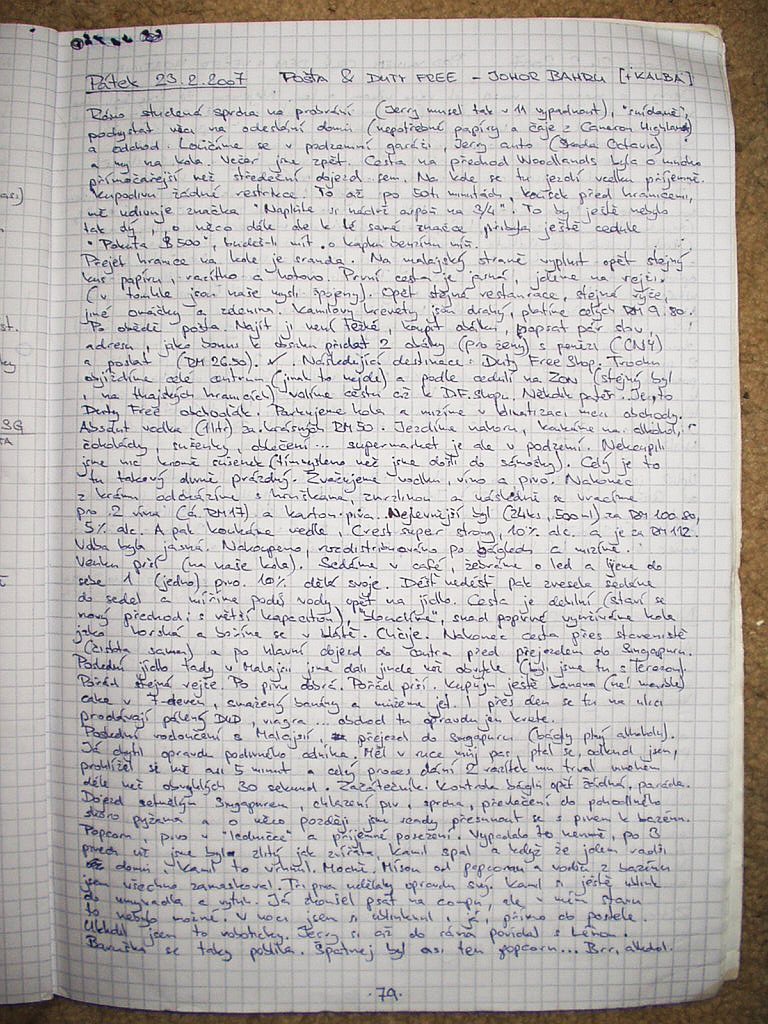 Pátek 23.2.2007 POŠTA & DUTY FREE – JOHOR BAHRU [+KALBA]
Ráno studená sprcha na probrání (Jerry musel tak v 11 vypadnout), "snídaně",
pochystat věci na odeslání domů (nepotřebné papíry a čaje z Cameron Highlands)
a odchod. Loučíme se v podzemní garáži, Jerry auto (Škoda Octavia)
a my na kola. Večer jsme zpět. Cesta na přechod Woodlands byla o mnoho
přímočařejší než středeční dojezd sem. Na kole se tu jezdí vcelku příjemně.
Kupodivu žádné restrikce. To až po 50ti minutách, kousek před hranicemi,
mě udivuje značka "Naplňte si nádrž aspoň na 3/4". To by ještě nebylo
tak divný, o něco dále ale k té samé značce přibyla ještě cedule
"Pokuta $500", budeš-li mít o kapku benzínu míň.
Přejet hranice na kole je sranda. Na malajský straně vyplnit opět stejný
kus papíru, razítko a hotovo. První cesta je jasná, jdeme na rejži.
(v tomhle jsou naše mysli spojeny). Opět stejná restaurace, stejná rýže,
jiné omáčky a zelenina. Kamilovy krevety jsou drahý, platíme celých RM 9.80.
Po obědě pošta. Najít ji není těžké, koupit obálku, popsat pár slov,
adresu, jako bonus k obsahu přidat 2 obálky (pro ženy) s penězi (CNY)
a poslat (RM 26.50). ✓. Následující destinace: Duty Free Shop. Trochu
objíždíme celé centrum (jinak to nejde) a podle cedulí na ZON (stejný byl
i na thajských hranicích) volíme cestu až k D.F. shopu. Několik pater. Je to
Duty Free obchoďák. Parkujeme kola a mizíme v klimatizaci mezi obchody.
Absolut vodka (1 litr) za krásných RM 50. Jezdíme nahoru, koukáme na alkohol,
čokolády, sušenky, oblečení... supermarket je ale v podzemí. Nekoupili
jsme nic kromě sušenek (tím myšleno než jsme došli do sámošky). Celý je to
tu takový divně prázdný. Zvažujeme vodku, víno a pivo. Nakonec
z krámu odcházíme s hruškama, zmrzlinou a následně se vracíme
pro 2 vína (á RM17) a karton piva. Nejlevnější byl (24ks, 500ml) za RM 100.80,
5% alc. A pak koukáme vedle, Crest super strong, 10% alc. a je za RM 112.
Volba byla jasná. Nakoupeno, rozdistribuováno po báglech a mizíme.
Venku prší (na naše kola). Sedáme v café, žebráme o led a lijeme do
sebe 1 (jedno) pivo. 10% dělá svoje. Déšť nedéšť pak zvesela sedáme
do sedel a míříme podél vody opět na jídlo. Cesta je debilní (staví se
nový přechod s větší kapacitou), "bloudíme", snad poprvé využíváme kola
jako horská a boříme se v blátě. Chčije. Nakonec cesta přes staveniště
(čistota sama) a po hlavní objezd do centra před přejezdem do Singapuru.
Poslední jídlo tady v Malajsii jsme dali jinde než obvykle (byli jsme tu s Terezou).
Pořád stejná rejže. Po pivu dobrá. Pořád prší. Kupuju ještě banana (ne! marble)
cake v 7-eleven, smažený banány a můžeme jet. I přes den se tu na ulici
prodávají pálený DVD, viagra... obchod tu opravdu jen kvete.
Poslední rozloučení s Malajsií, přejezd do Singapuru (bágly plný alkoholu).
Já chytil opravdu podivného úředníka. Měl v ruce můj pas, ptal se, odkud jsem,
prohlížel si mě asi 5 minut a celý proces dání 2 razítek mu trval mnohem
déle než obvyklých 30 sekund. Začátečník. Kontrola báglů opět žádná, paráda.
Dojezd setmělým Singapurem, chlazení piv, sprcha, převlečení do pohodlného
skoro pyžama a o něco později jsme ready přesunout se s pivem k bazénu.
Popcorn, pivo v "ledničce" a příjemné posezení. Vypadalo to nevinně, po 3
pivech už jsme byli zlitý jak zvířata, Kamil spal a když že jdem radši
domů, Kamil to vrhnul. Mocně. Mísou od popcornu a vodou z bazénu
jsem všechno zamaskoval. Tři piva udělaly opravdu svý. Kamil si ještě ublink
do umyvadla a vytuh. Já zkoušel psát na compu, ale v mém stavu
to nebylo možné. V noci jsem si ublinknul i já, přímo do postele.
Uklidil jsem to roboticky. Jerry si až do rána povídal s Lénou.
Baruška se taky poblila. Špatnej byl asi ten popcorn... Brr, alkohol.
·79·